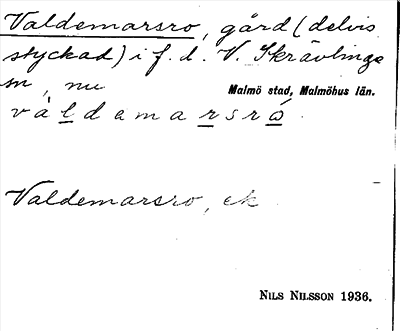 Valdemarsro, gård (delvis
styckad) i f. d. V. Skrävlinge
sn, nu Malmö stad, Malmöhus län.
våldemarsró
Valdemarsro, ek
NILS NILSSON 1936.